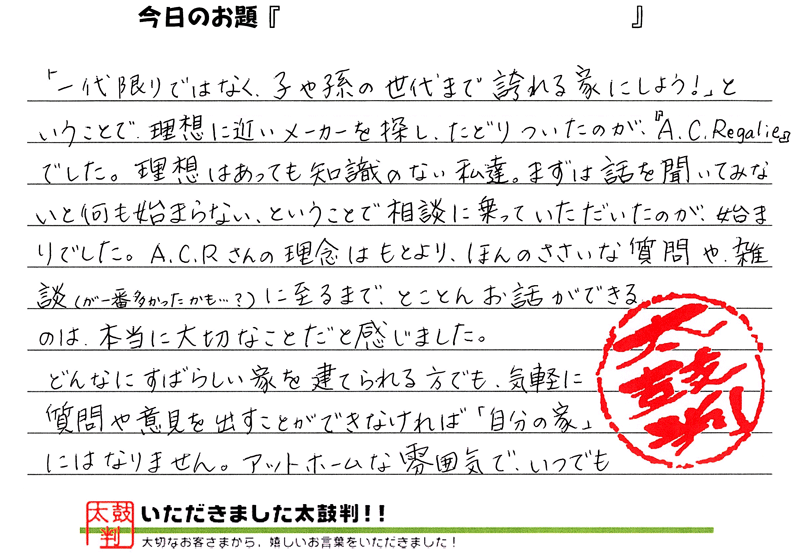 今日のお題『　　　　　　　　　　』
「一代限りではなく、子や孫の世代まで誇れる家にしよう！」と
いうことで、理想に近いメーカーを探し、たどりついたのが、『A.C.Regalie』
でした。理想はあっても知識のない私達。まずは話を聞いてみな
いと何も始まらない、ということで相談に乗っていただいたのが、始ま
りでした。A.C.Rさんの理念はもとより、ほんのささいな質問や、雑
談（が一番多かったかも…？）に至るまで、とことんお話ができる
のは、本当に大切なことだと感じました。
どんなにすばらしい家を建てられる方でも、気軽に
質問や意見を出すことができなければ「自分の家」
にはなりません。アットホームな雰囲気で、いつでも
太鼓判
太鼓判
いただきました太鼓判！！
大切なお客さまから、嬉しいお言葉をいただきました！